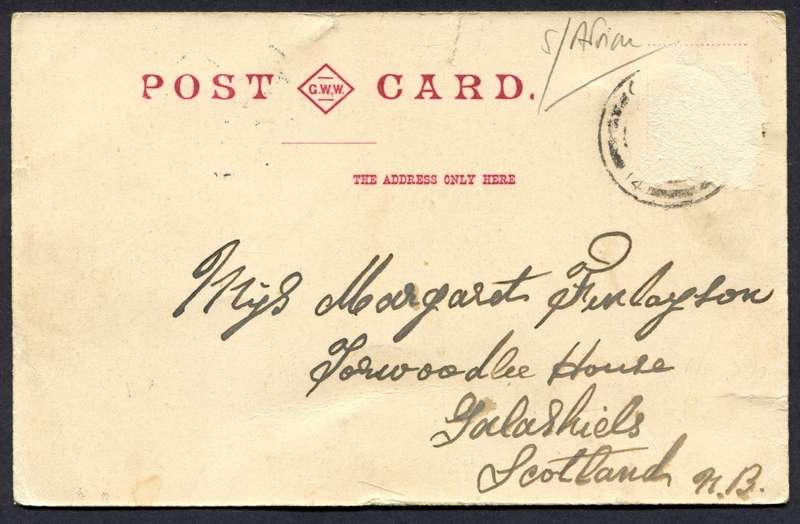 S/Avion
POST G.W.W. CARD.
THE ADDRESS ONLY HERE
14
Miss Margaret Finlayson
Torwoodlee House
Galashiels
Scotland N.B.